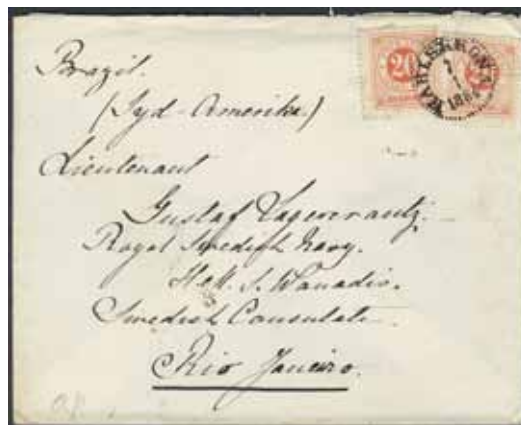 Brazil.
(Syd-Amerika)
Lieutenant
Gustaf Lagercrantz.
Royal Swedish Navy.
S. Wanadis.
Swedish Consulate.
Rio Janeiro.
20
20
KARLSKRONA
1